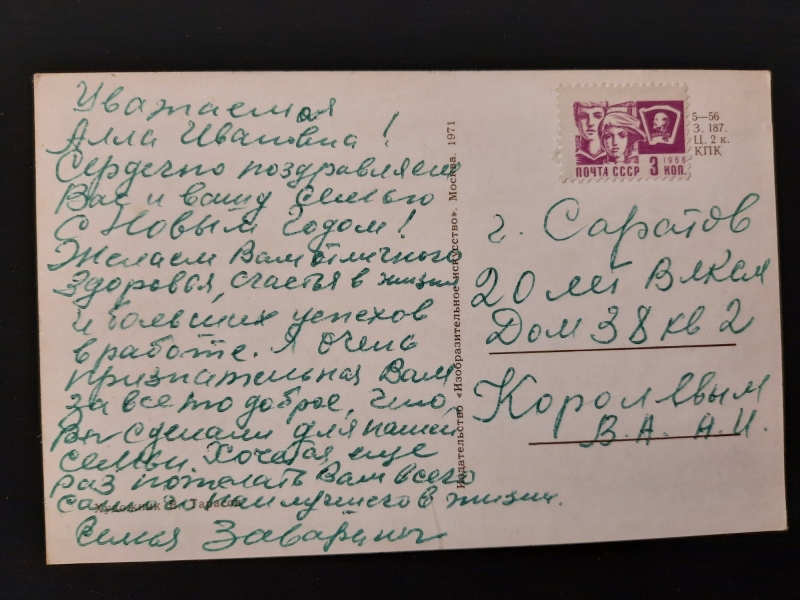 Уважаемая
Алла Ивановна!
Сердечно поздравляем
Вас и вашу семью
С Новым Годом!
Желаем Вам отличного
Здоровья, счастья в жизни
и больших успехов
в работе. Я очень
признательная Вам
за все то доброе, что,
Вы сделали для нашей
семьи. Хочется еще
раз пожелать Вам всего
самого наилучшего в жизни.
Семья
Художник В. Тарасов
Издательство «Изобразительное искусство». Москва. 1971
1966
ПОЧТА СССР 3 КОП.
5—56
З. 187.
Ц. 2 к.
КПК
г. Саратов
20 ле Влксм
Дом 38 кв 2
Королевым
В.А. А.И.